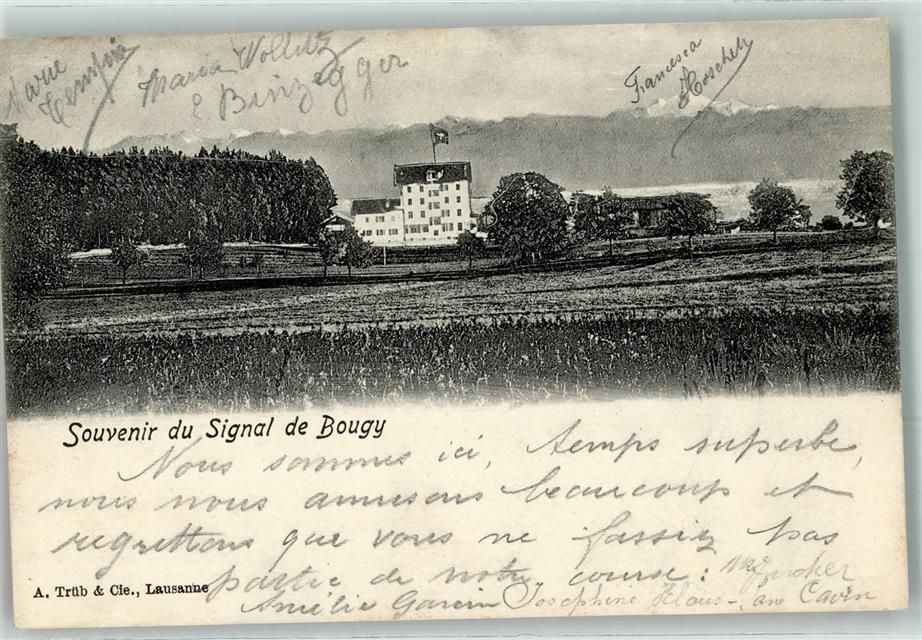 Marie
Maria Wollitz
Binzegger
Francesca
Hoschek
Souvenir du Signal de Bougy
Nous sommes ici, temps superbe,
nous nous amusons beaucoup et
regrettons que vous ne fassiez pas
partie de notre course:
A. Trüb & Cie., Lausanne
Amélie Garcin Josephine